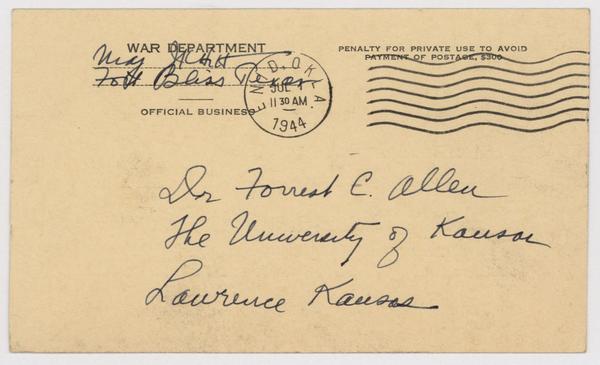 WAR DEPARTMENT
Maj
Fort Bliss Texas
OFFICIAL BUSINESS
ENID, OKLA.
JUL
11 30 AM
1944
PENALTY FOR PRIVATE USE TO AVOID
PAYMENT OF POSTAGE, $300
Dr Forrest C. Allen
The University of Kansas
Lawrence Kansas